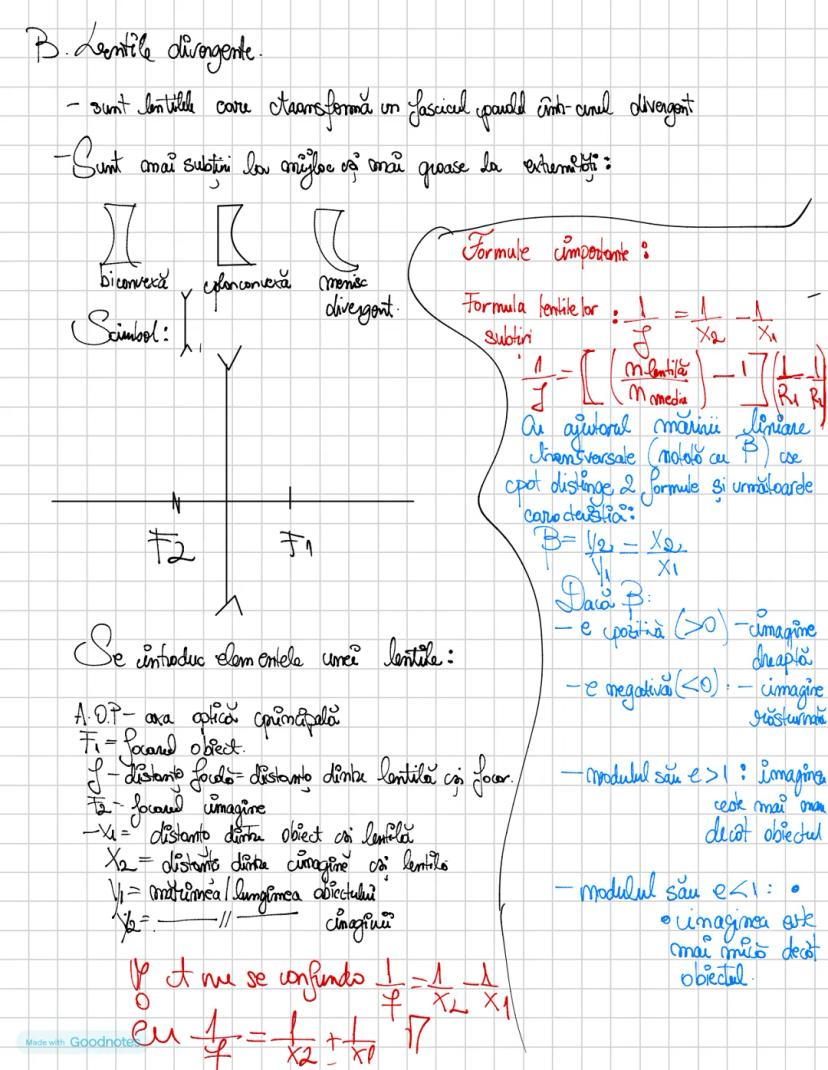 B. Lentile divergente.
- sunt lentilele care transformă un fascicul paralel într-unul divergent
- Sunt mai subțiri la mijloc și mai groase la extremități:
biconvexă planconvexă menisc
divergent.
Simbol:
F2 F1
Se introduc elementele unei lentile:
A.O.P - axa optică principală
F1 = focarul obiect.
f - distanța focală = distanța dintre lentilă și focar.
F2 - focarul imagine
-x1 = distanța dintre obiect și lentilă
x2 = distanța dintre imagine și lentilă
y1 = mărimea/lungimea obiectului
y2 = —//— imaginii
! A nu se confunda 1/f = 1/x2 - 1/x1
cu 1/f = 1/x2 + 1/x1 !
Formule importante:
Formula lentilelor : 1/f = 1/x2 - 1/x1
subțiri
1/f = [(n lentilă / n mediu) - 1] (1/R1 - 1/R2)
Cu ajutorul măririi liniare
transversale (notată cu β) se
pot distinge 2 formule și următoarele
caracteristici:
β = y2/y1 = x2/x1
Dacă β:
- e pozitivă (>0) - imagine
dreaptă
- e negativă (<0): - imagine
răsturnată
- modulul său e >1 : imaginea
este mai mare
decât obiectul
- modulul său e <1 : •
• imaginea este
mai mică decât
obiectul.
Made with Goodnotes